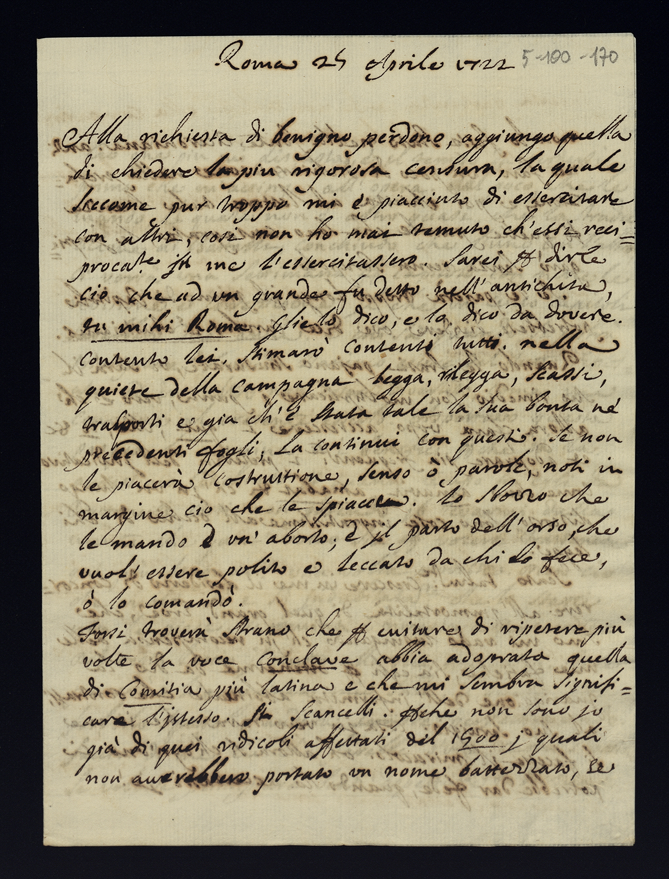 Roma 25 Aprile 1722 5-100-170
Alla richiesta di benigno perdono, aggiungo quella
di chiedere la piu rigorosa censura, la quale
siccome pur troppo mi è piacciuto di essercitare
con altri, così non ho mai temuto ch'essi reci=
procate in me l'essercitassero. Sarei dirle
cio che ad un grande fu detto nell'antichita,
tu mihi Roma glielo dico, e lo dico da dovere.
contento lei, stimarò contenti tutti. nella
quiete della campagna legga, rilegga, scassi,
trasporti e gia ch'è stata tale la sua bonta ne'
precedenti fogli, la continui con questi. Se non
le piacerà costruttione, senso ò parole, noti in
margine cio che le spiacce. Lo sborro che
le mando è un' aborto, è il parto dell'orso, che
vuol' essere polito e leccato da chi lo fece,
ò lo comandò.
Forsi troverà strano che euitare di ripetere più
volte la voce Conclave abbia adoprata quella
di Comitia più latina e che mi sembra signifi=
care l'istesso. Si scancelli: che non sono jo
già di quei ridicoli affettati del 1500 j quali
non auerebbero portato un nome battezzato, se